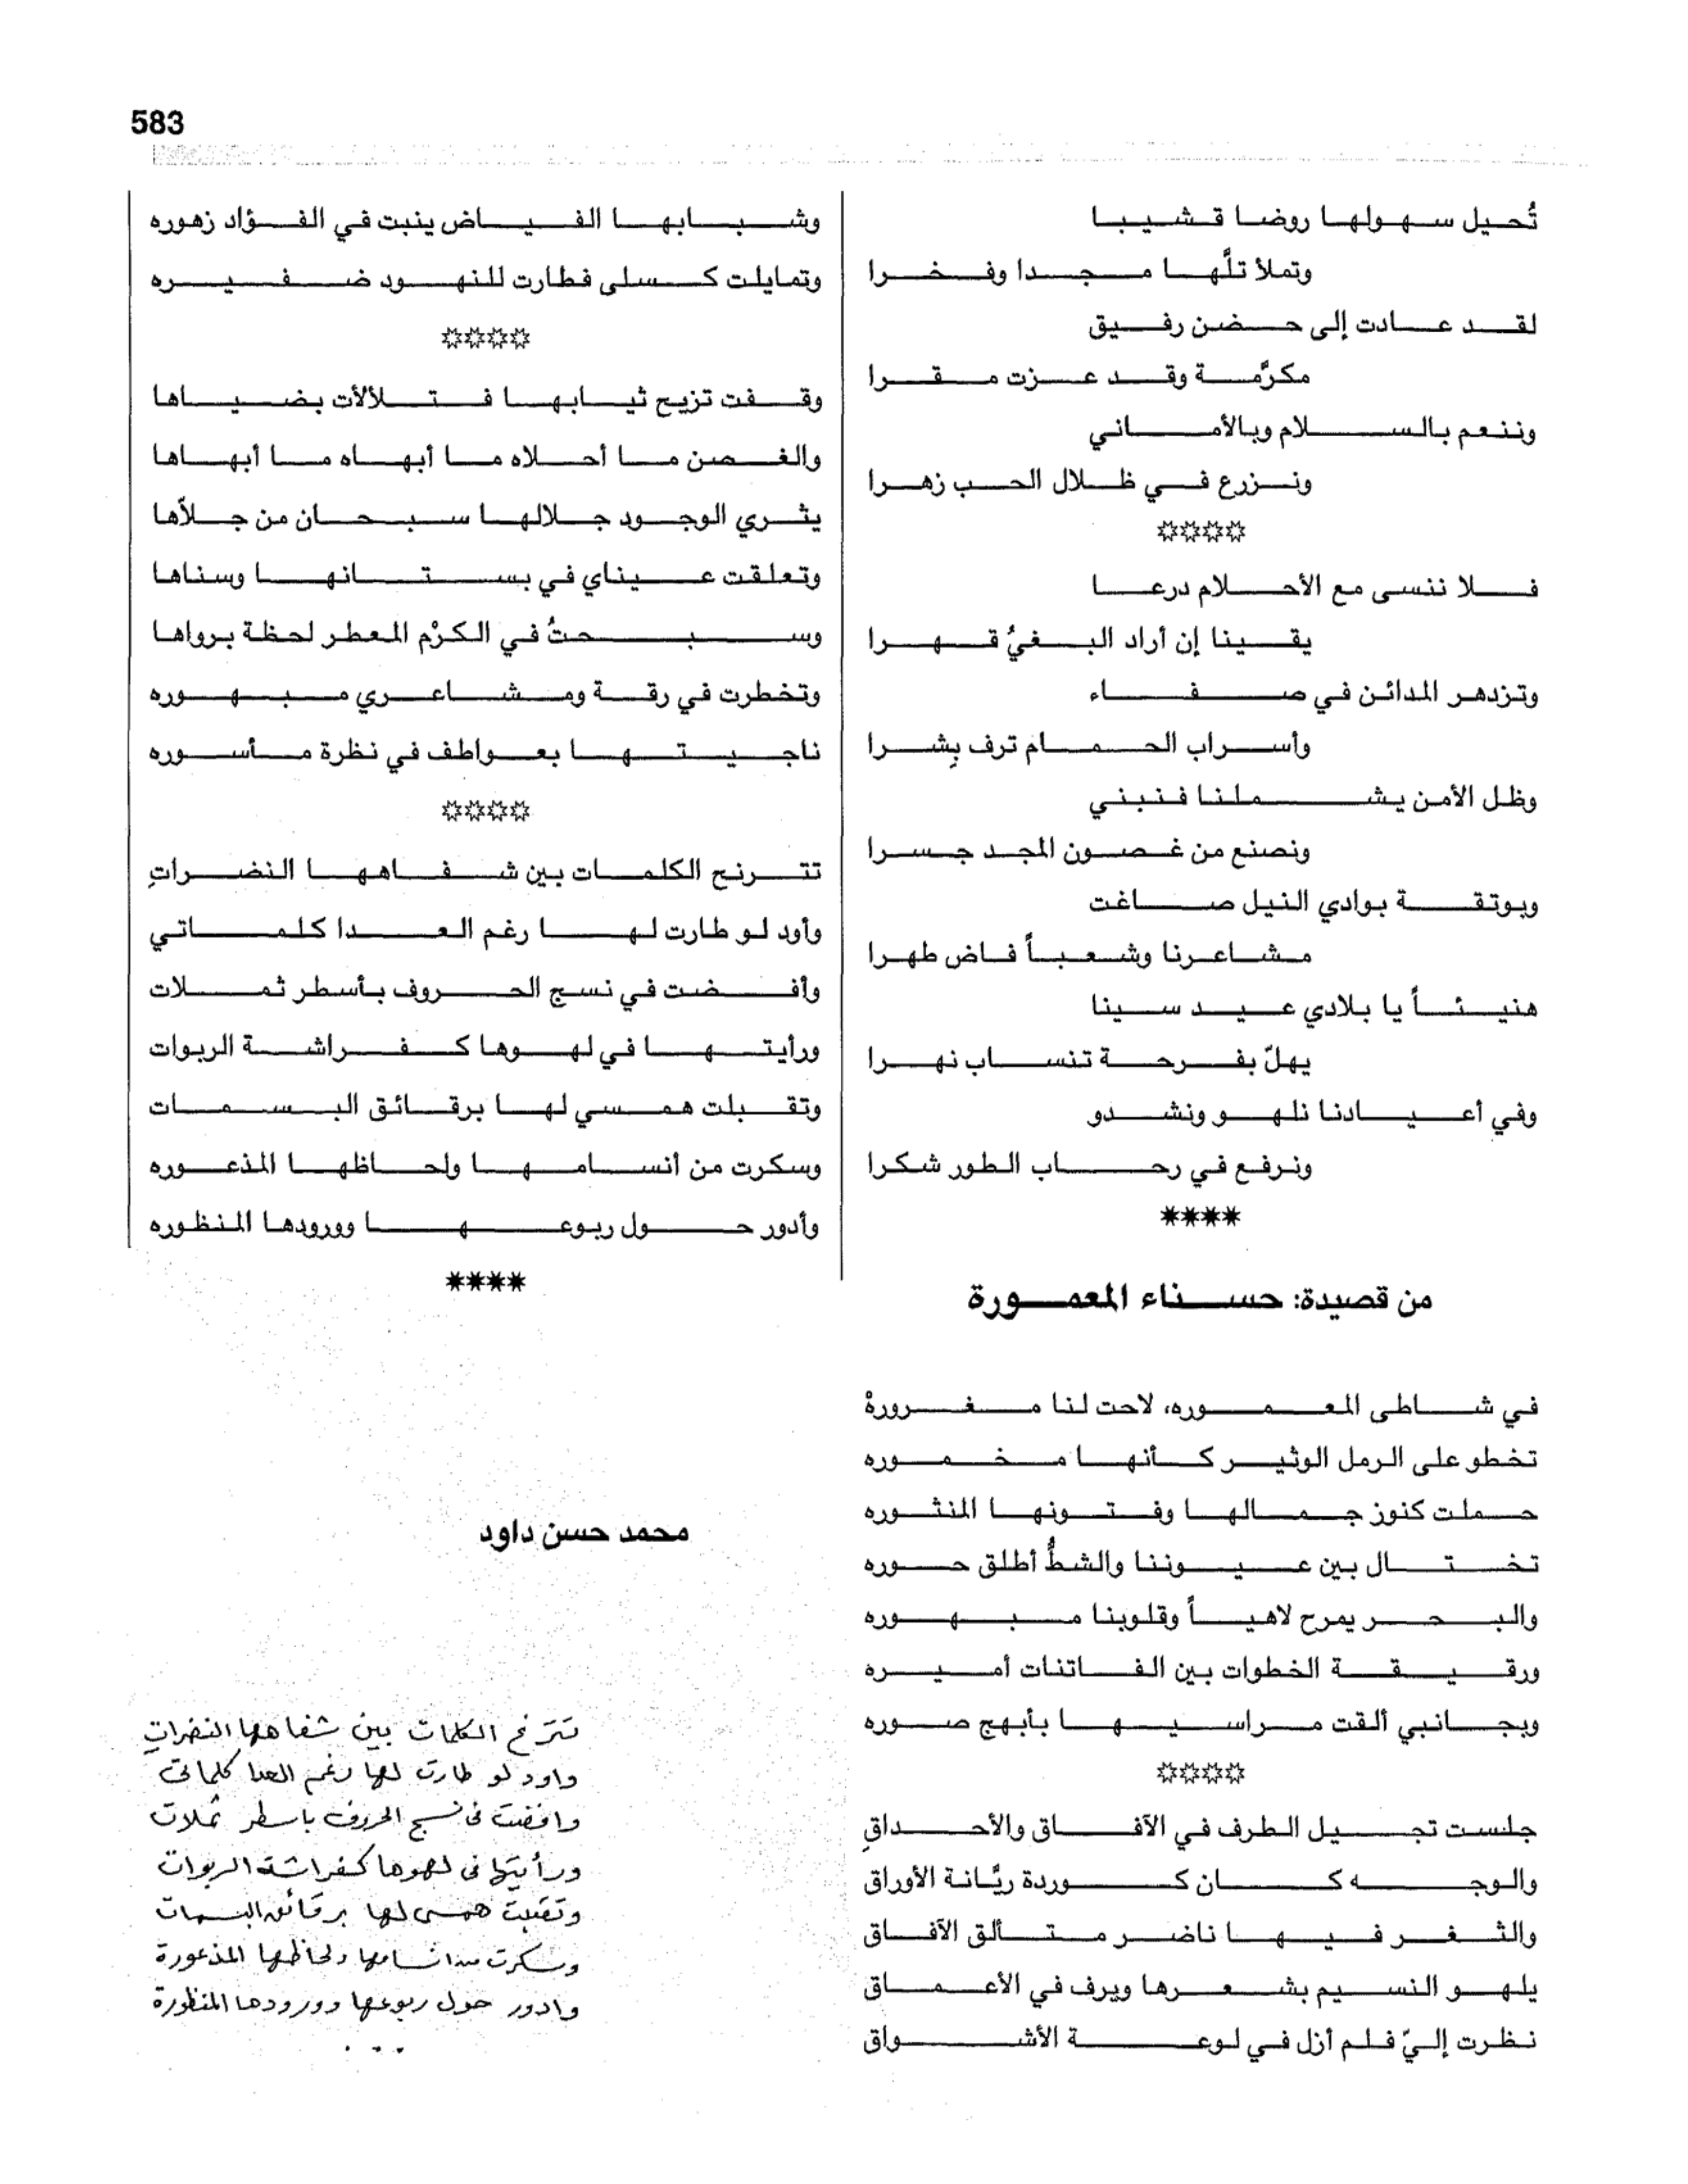 583
تُحيل سهولها روضا قشيبا
وتملأ تلَّها مجدا وفخرا
لقد عادت إلى حضن رفيق
مكرَّمة وقد عزت مقرا
وننعم بالسلام وبالأماني
ونزرع في ظلال الحب زهرا
فلا ننسى مع الأحلام درعا
يقينا إن أراد البغيُ قهرا
وتزدهر المدائن في صفاء
وأسراب الحمام ترف بِشرا
وظل الأمن يشملنا فنبني
ونصنع من غصون المجد جسرا
وبوتقة بوادي النيل صاغت
مشاعرنا وشعباً فاض طهرا
هنيئاً يا بلادي عيد سينا
يهلّ بفرحة تنساب نهرا
وفي أعيادنا نلهو ونشدو
ونرفع في رحاب الطور شكرا
****
من قصيدة: حسناء المعمورة
في شاطى المعموره، لاحت لنا مغرورهْ
تخطو على الرمل الوثير كأنها مخموره
حملت كنوز جمالها وفتونها المنثوره
تختال بين عيوننا والشطُّ أطلق حوره
والبحر يمرح لاهياً وقلوبنا مبهوره
ورقيقة الخطوات بين الفاتنات أميره
وبجانبي ألقت مراسيها بأبهج صوره
جلست تجيل الطرف في الآفاق والأحداقِ
والوجه كان كوردة ريَّانة الأوراق
والثغر فيها ناضر متألق الآفاق
يلهو النسيم بشعرها ويرف في الأعماق
نظرت إليّ فلم أزل في لوعة الأشواق
وشبابها الفياض ينبت في الفؤاد زهوره
وتمايلت كسلى فطارت للنهود ضفيره
وقفت تزيح ثيابها فتلألأت بضياها
والغصن ما أحلاه ما أبهاه ما أبهاها
يثري الوجود جلالها سبحان من جلاّها
وتعلقت عيناي في بستانها وسناها
وسبحتُ في الكرْم المعطر لحظة برواها
وتخطرت في رقة ومشاعري مبهوره
ناجيتها بعواطف في نظرة مأسوره
تترنح الكلمات بين شفاهها النضراتِ
وأود لو طارت لها رغم العدا كلماتي
وأفضت في نسج الحروف بأسطر ثملات
ورأيتها في لهوها كفراشة الربوات
وتقبلت همسي لها برقائق البسمات
وسكرت من أنسامها ولحاظها المذعوره
وأدور حول ربوعها وورودها المنظوره
****
محمد حسن داود
تترنح الكلمات بين شفاهها النضراتِ
واود لو طارت لها رغم العدا كلماتى
وافضت فى نسج الحروف باسطر ثملات
ورأيتها فى لهوها كفراشة الربوات
وتقبلت همسى لها برقائق البسمات
وسكرت من انسامها ولحاظها المذعورة
وادور حول ربوعها وورودها المنظورة